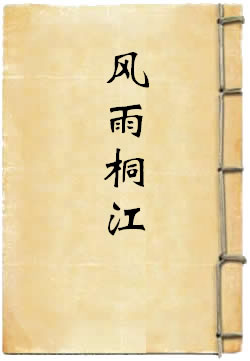 风雨桐江